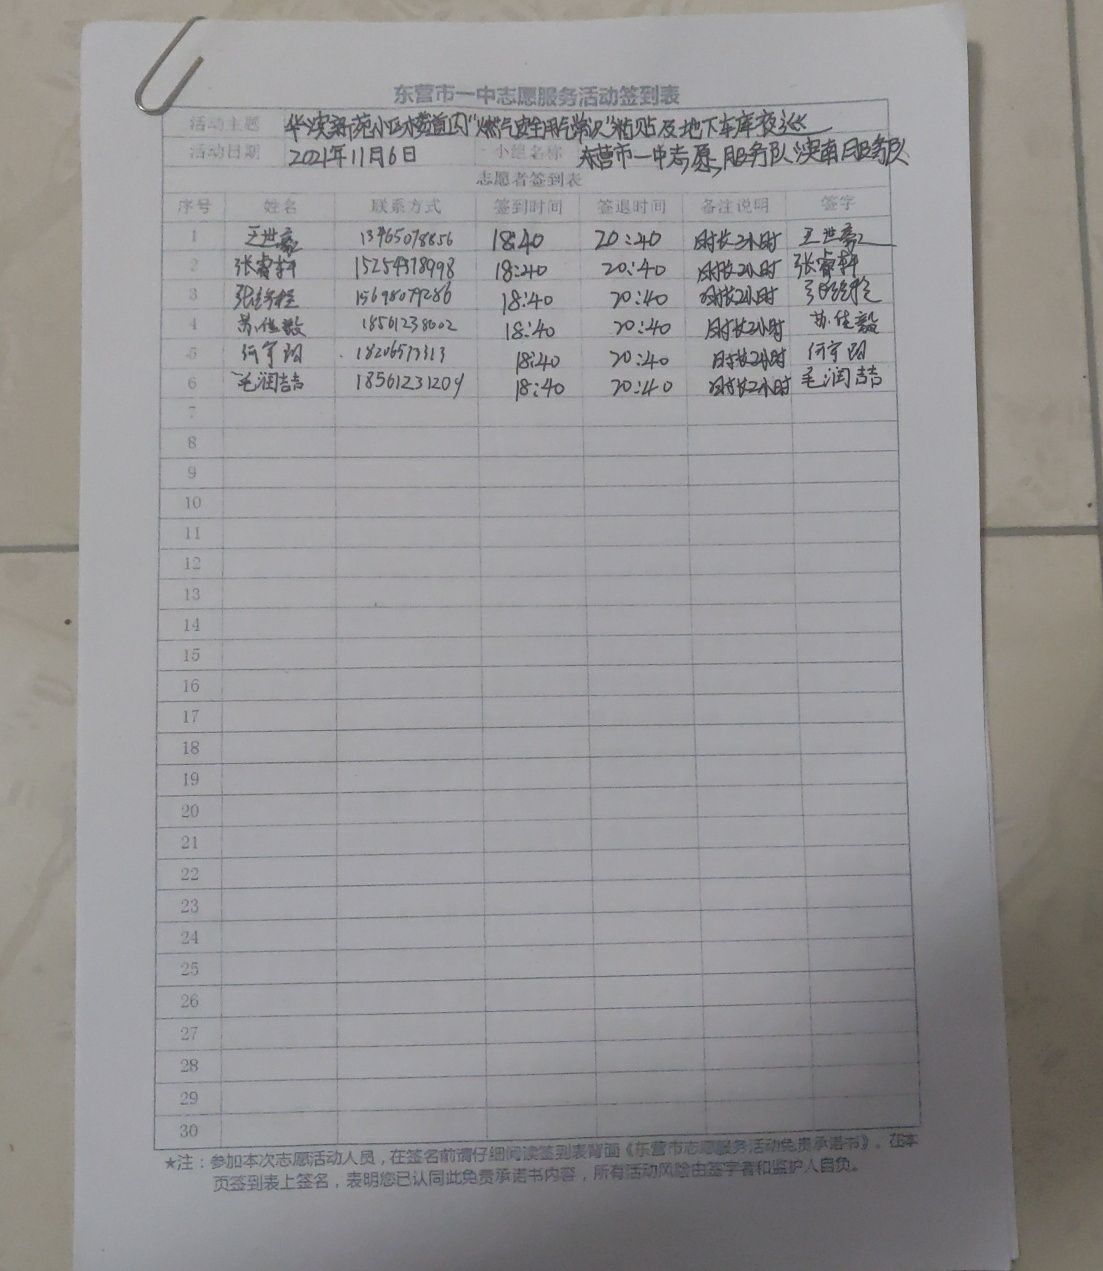 东营市一中志愿服务活动签到表
活动主题 华滨新苑小区楼道内"燃气安全用气常识"粘贴及地下车库夜巡
活动日期 2021年11月6日 小组名称 东营市一中志愿服务队滨南服务队
志愿者签到表
序号 姓名 联系方式 签到时间 签退时间 备注说明 签字
1 王世豪 13965078856 18:40 20:40 时长2小时 王世豪
2 张睿轩 15254378998 18:40 20:40 时长2小时 张睿轩
3 15698079286 18:40 20:40 时长2小时
4 苏佳毅 18561238002 18:40 20:40 时长2小时 苏佳毅
5 何宇阳 18:40 20:40 时长2小时 何宇阳
6 毛润喆 18561231209 18:40 20:40 时长2小时 毛润喆
7
8
9
10
11
12
13
14
15
16
17
18
19
20
21
22
23
24
25
26
27
28
29
30
★注：参加本次志愿活动人员，在签名前请仔细阅读签到表背面《东营市志愿服务活动免责承诺书》。在本
页签到表上签名，表明您已认同此免责承诺书内容，所有活动风险由签字者和监护人自负。